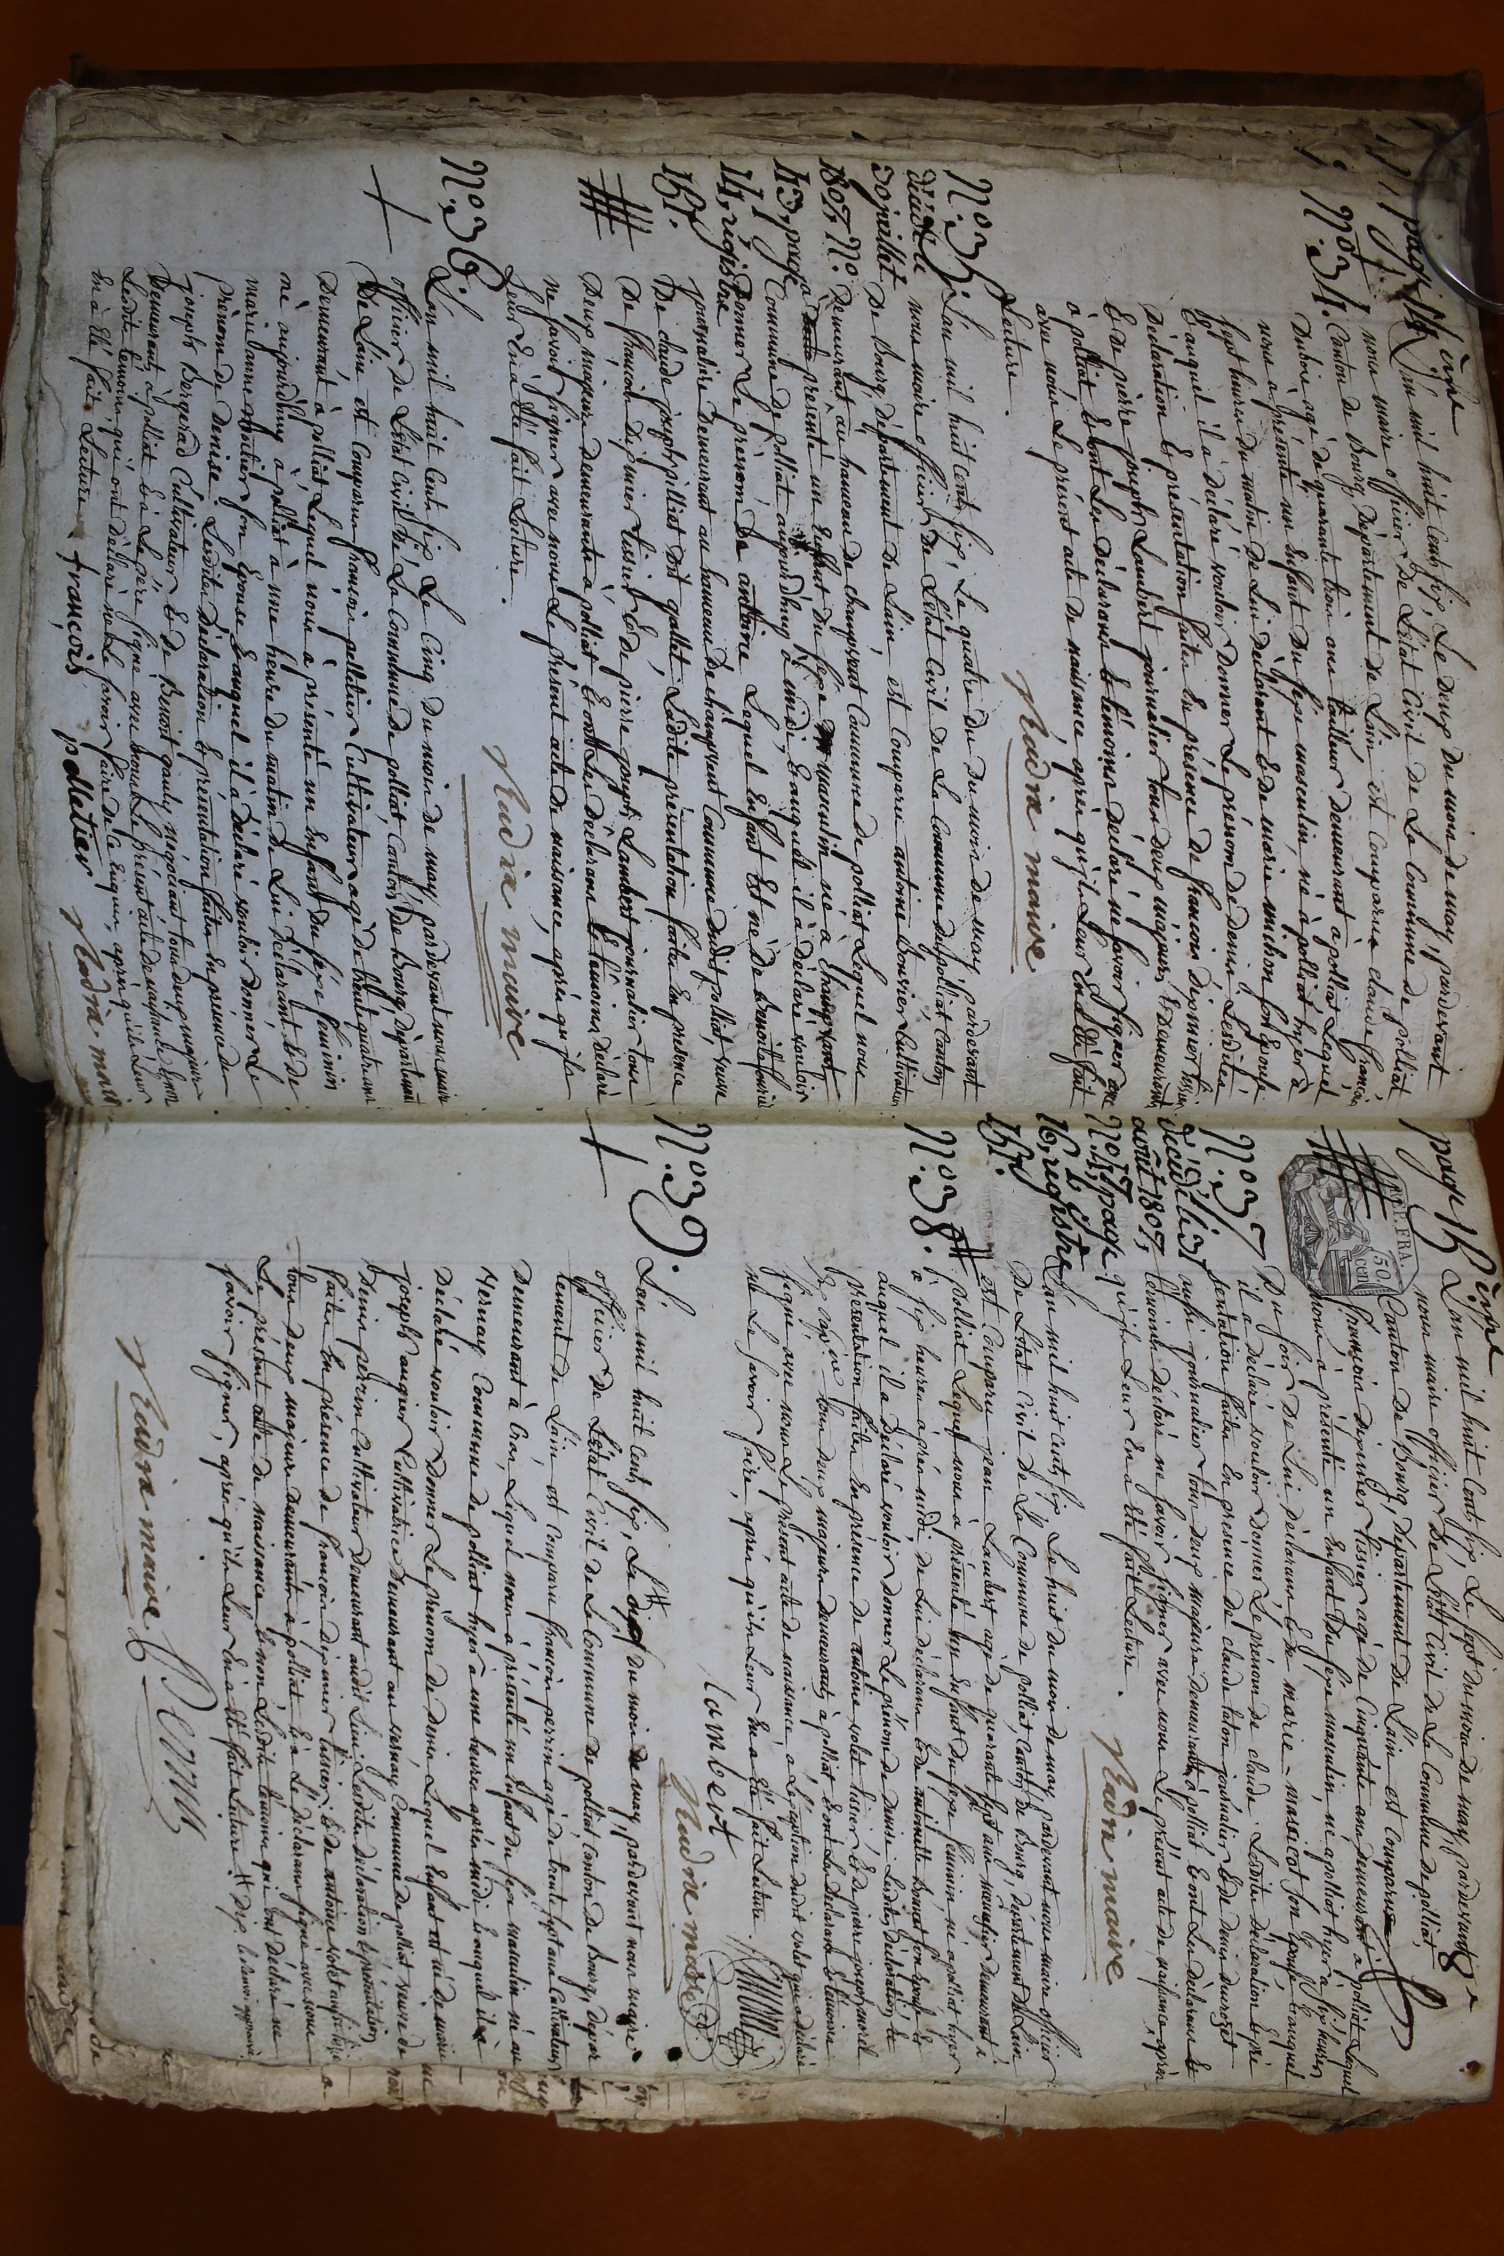 page 14ème
N.° 34.
L'an mil huit cent six, Le deux du mois de may, pardevant
nous maire officier de L'état Civil de La Commune de polliat,
Canton de Bourg, département de L'ain est Comparu claude françois
Dubois agé de quarante trois ans tailleur demeurant à polliat, Lequel
nous a présenté un Enfant du sexe masculin, né à polliat, hyer à
sept heures du matin de Lui déclarant & de marie michon son Epouse
& auquel il a déclaré vouloir donner Le prénom de denis, Lesdites
déclaration & présentation faites En présence de françois dépinier tissier
& de pierre joseph Lambert journalier tous deux majeurs, & demeurants
à polliat & ont Les déclarant & témoins déclaré ne savoir signer
avec nous Le présent acte de naissance après qu'il Leur En a Eté fait
Lecture.
Nodia maire
N.° 35.
décédé le
30 juillet
1807, N.°
43, page
14, registre
L'an mil huit cent six, Le quatre du mois de may, pardevant
nous maire officier de L'état Civil de La Commune de polliat Canton
de Bourg, département de L'ain est Comparu antoine bouvier Cultivateur
demeurant au hameau de champvent Commune de polliat Lequel nous
a présenté un Enfant du sexe masculin né à champvent
Commune de polliat aujourd'huy à midi, & auquel il a déclaré vouloir
donner Le prenom de antoine Lequel Enfant Est né de
journalière demeurant au hameau de champvent Commune dudit polliat, veuve
de claude joseph pilliat dit gallet, Ladite présentation faite En présence
de françois dépinier tissier & de pierre joseph Lambert journalier tous
deux majeurs demeurants à polliat & ont Le déclarant & témoins, déclaré
ne savoir signer avec nous Le présent acte de naissance, après qu'il
Leur En a Eté fait Lecture.
Nodia maire
N.° 36.
L'an mil huit Cent six Le Cinq du mois de may pardevant nous maire
officier de L'état Civil de La Commune de polliat, Canton de Bourg, département
de L'ain est Comparu françois pelletier Cultivateur agé de trente quatre ans
demeurant à polliat Lequel nous a présenté un Enfant du sexe feminin
né aujourd'huy à polliat à une heure du matin de Lui déclarant & de
marie anne son Epouse & auquel il a déclaré vouloir donner Le
prénom de denise. Lesdites déclaration & présentation faites En présence de
joseph Bergerad Cultivateur & de Benoit négociant tous deux majeurs
demeurants à polliat & a Le père signé avec nous Le présent acte de naissance & non
Lesdits témoins qui ont déclaré ne Le savoir faire de Ce Enquis, après qu'il Leur
En a Eté fait Lecture
françois pelletier Nodia maire
page 15ème
8e
RÉP. FRA.
50
cent
L'an mil huit Cent six, Le sept du mois de may, pardevant
nous maire officier de L'état Civil de La Commune de polliat
Canton de Bourg, département de L'ain est Comparu
françois dépinier tissier agé de Cinquante ans, demeurant à polliat Lequel
nous a présenté un Enfant du sexe masculin né à polliat hyer à six heures
N.° 37
décédé le 31
août 1807,
N.° page
16, registre
du soir de Lui déclarant & de marie-mascicot son Epouse & auquel
il a déclaré vouloir donner Le prénom de claude. Lesdites déclaration & pré
sentation faites En présence de claude teton journalier & de denis durozet
aussi journalier tous deux majeurs demeurants à polliat & ont Le déclarant &
témoins déclaré ne savoir signer avec nous Le présent acte de naissance, après
qu'il Leur En a Eté fait Lecture.
Nodia maire
N.° 38.
L'an mil huit cent six Le huit du mois de may, pardevant nous maire officier
de L'état Civil de La Commune de polliat, Canton de Bourg, département de L'ain
est Comparu jean Lambert agé de quarante sept ans demeurant à
polliat Lequel nous a présenté un Enfant du sexe feminin né à polliat hyer
à six heures après midi, de Lui déclarant & de son Epouse &
auquel il a déclaré vouloir donner Le prénom de denise Lesdites déclaration &
présentation faites En présence de antoine volet tissier, & de pierre joseph morel
tous deux majeurs demeurants à polliat & ont Le déclarant & témoins
signé avec nous Le présent acte de naissance à L'exeption dudit volet qui a déclaré
ne Le savoir faire, après qu'il Leur En a Eté fait Lecture.
lambert
Nodia maire
N.° 39.
L'an mil huit Cent six, Le dix du mois de may, pardevant nous maire
officier de L'état Civil de La Commune de polliat Canton de Bourg, dépar
tement de L'ain est Comparu françois perrin agé de trente sept ans Cultivateur
demeurant à Cras, Lequel nous a présenté un Enfant du sexe masculin né au
vernay Commune de polliat hyer à une heure après midi, & auquel il a
déclaré vouloir donner Le prénom de denis Lequel Enfant est né de marie
joseph augier Cultivatrice demeurant au vernay Commune de polliat veuve de
denis perrin Cultivateur demeurant audit Lieu. Lesdites déclaration & présentation
faites En présence de françois dépinier tissier, & de antoine volet aussi tissier
tous deux majeurs demeurants à polliat & a Le déclarant signé avec nous
Le présent acte de naissance & non Lesdits témoins qui ont déclaré ne
savoir signer, après qu'il Leur En a Eté fait Lecture # dix
Nodia maire Perrin